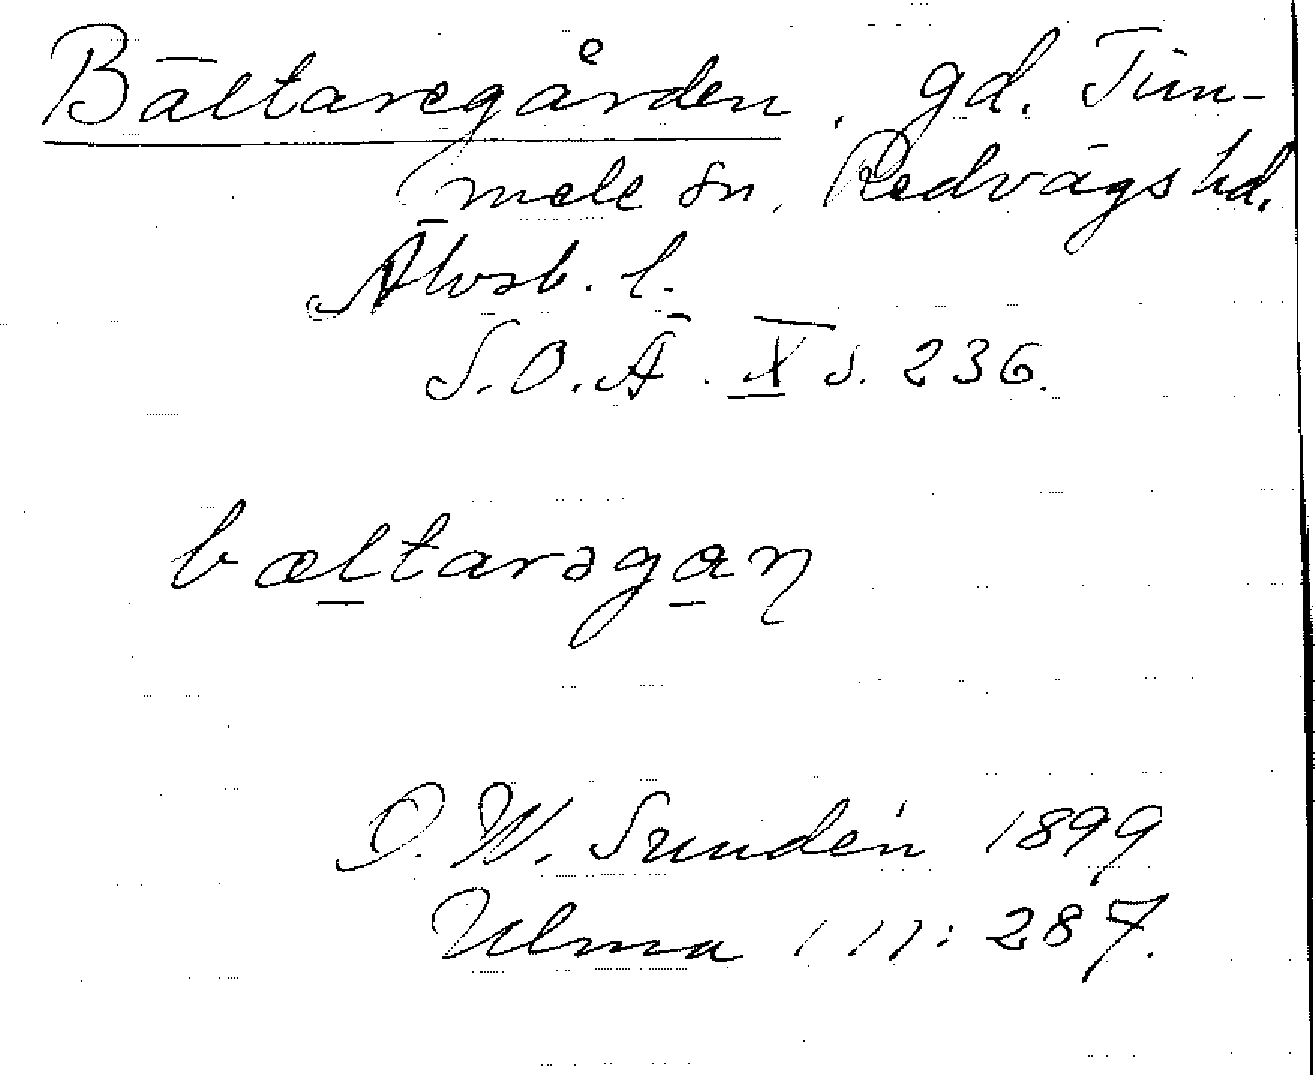 Bältaregården, gd. Tim-
mele sn, Redvägs hd.
Älvsb. l.
S.O.Ä. X s. 236.
bæltarəgaꞃ
D. W. Sundén 1899
Ulma 111:287.